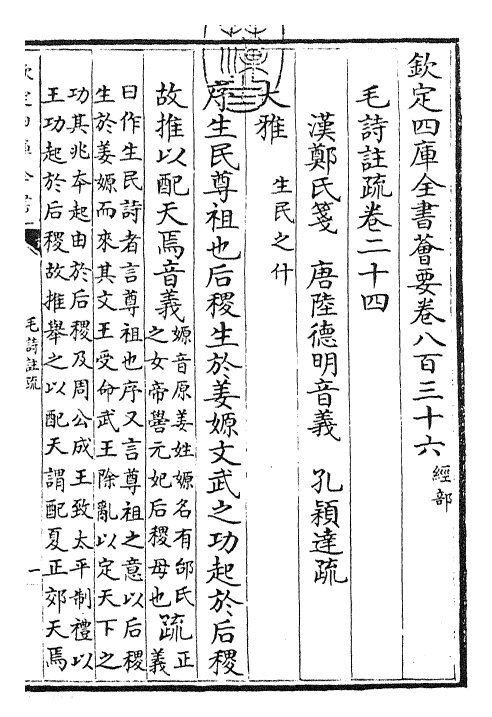 欽定四庫全書薈要卷八百三十六 經部
毛詩註疏卷二十四
漢鄭氏箋 唐陸德明音義 孔穎達疏
大雅 生民之什
序生民尊祖也后稷生於姜嫄文武之功起於后稷
故推以配天焉音義 嫄音原姜姓嫄名有邰氏
之女帝嚳元妃后稷母也 疏 正
義
曰作生民詩者言尊祖也序又言尊祖之意以后稷
生於姜嫄而來其文王受命武王除亂以定天下之
功其兆本起由於后稷及周公成王致太平制禮以
王功起於后稷故推舉之以配天謂配夏正郊天焉
欽定四庫全書
毛詩註疏
一